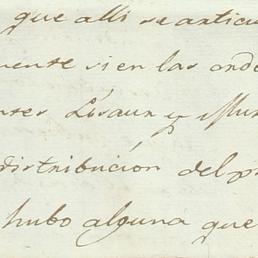 que alli se anticu
mente si en las orde
ntes Lisaur y Mun
distribucion del p
hubo alguna que